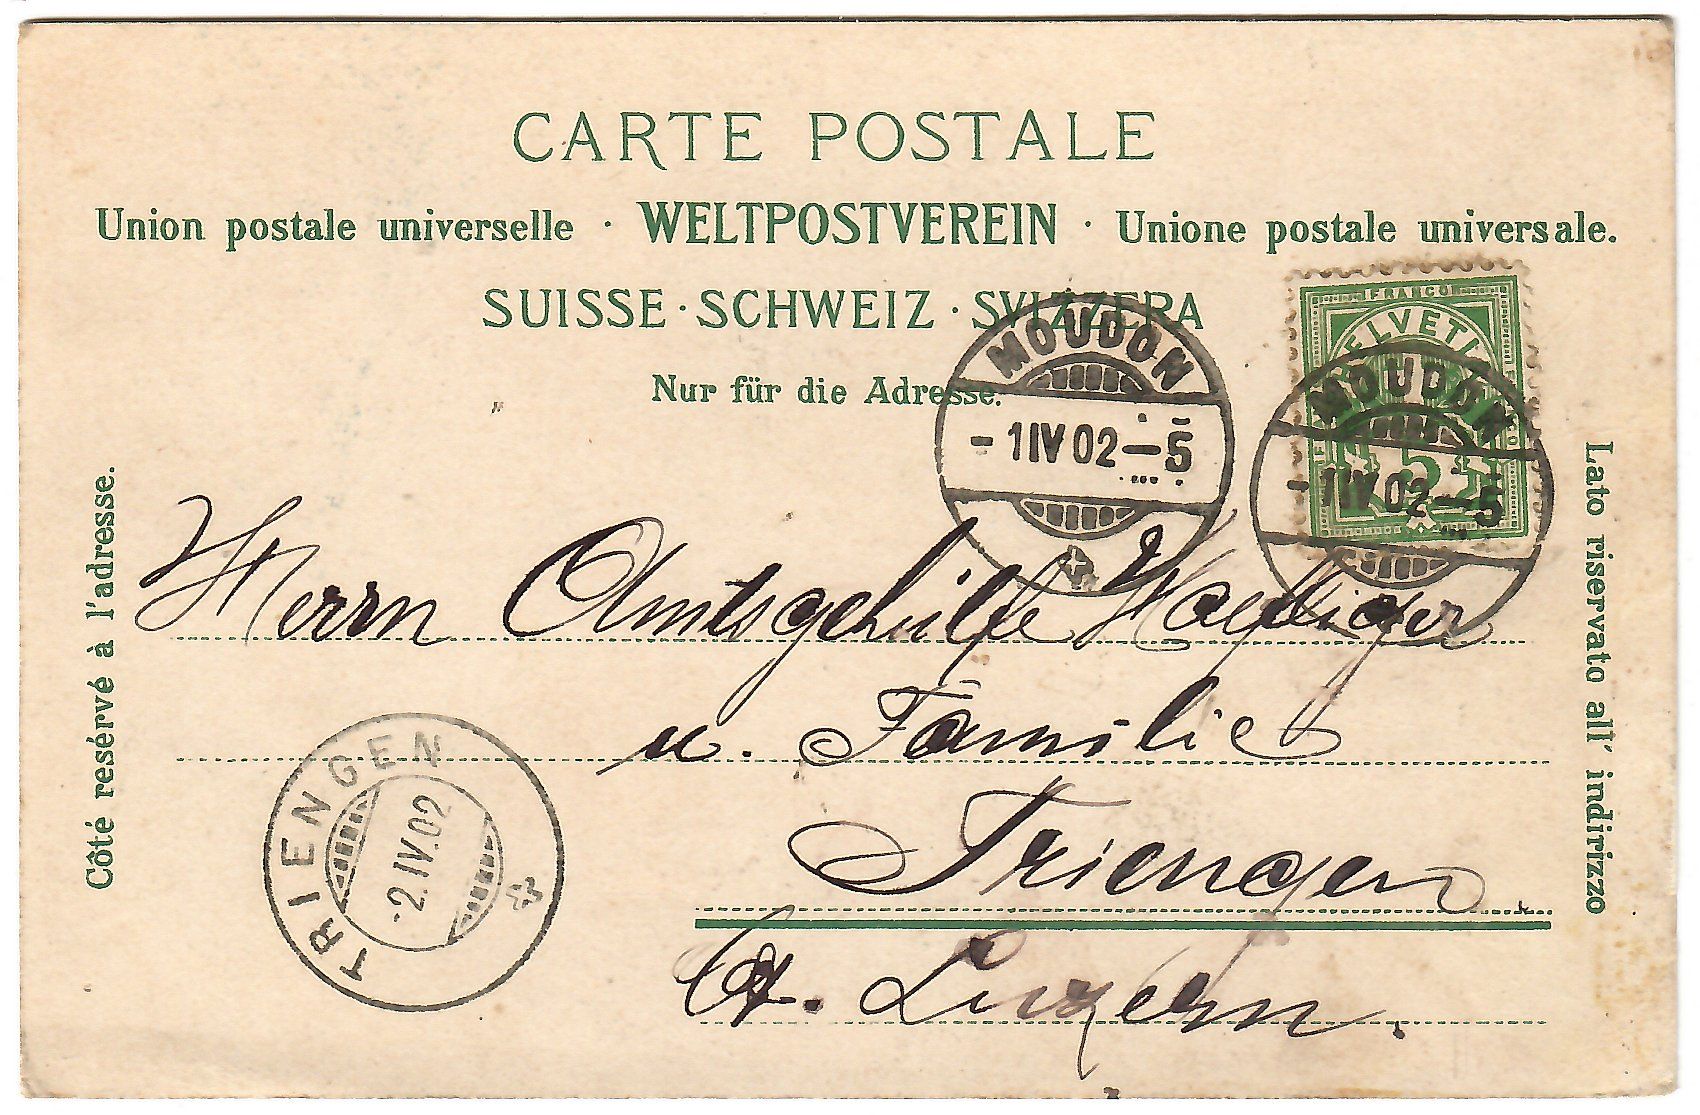 CARTE POSTALE
Union postale universelle · WELTPOSTVEREIN · Unione postale universale.
SUISSE · SCHWEIZ · SVIZZERA
Nur für die Adresse.
Côté resérvé à l'adresse.
Lato riservato all' indirizzo
FRANCO
HELVETIA
5
MOUDON
- 1 IV 02 — 5
MOUDON
- 1 IV 02 — 5
Herrn Amtsgehülfe
u. Familie
Triengen
Ct. Luzern.
TRIENGEN
- 2. IV. 02